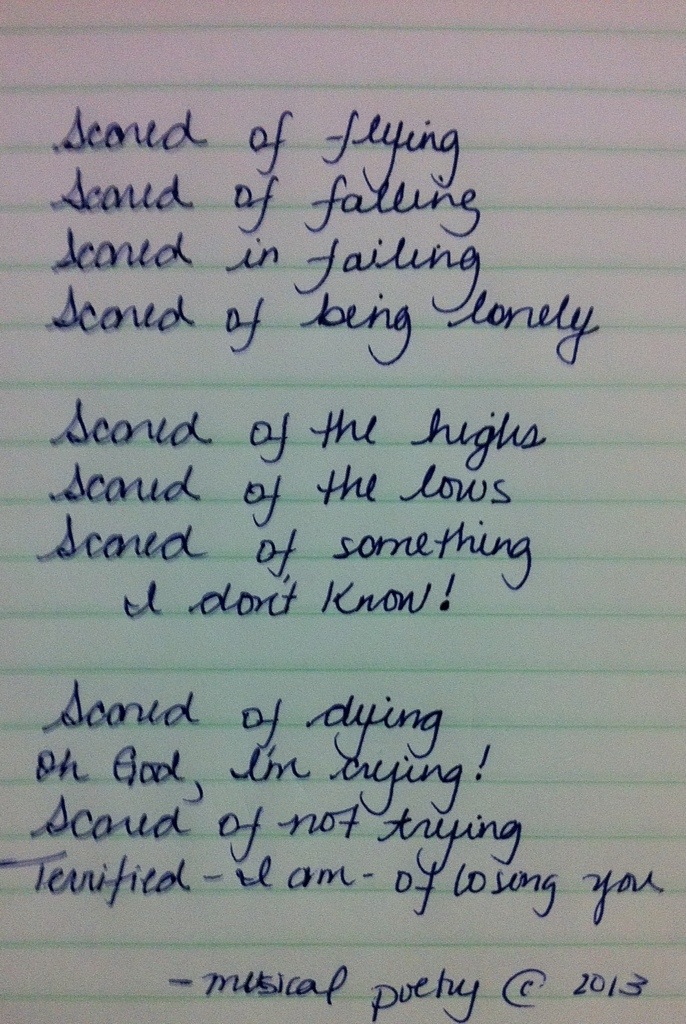 Scared of flying
Scared of falling
Scared in failing
Scared of being lonely
Scared of the highs
Scared of the lows
Scared of something
I don't know!
Scared of dying
Oh God, I'm crying!
Scared of not trying
Terrified - I am - of losing you
- musical poetry © 2013